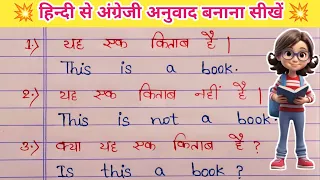 💥 हिन्दी से अंग्रेजी अनुवाद बनाना सीखें 💥
1:) यह एक किताब है |
This is a book.
2:) यह एक किताब नहीं है |
This is not a book.
3:) क्या यह एक किताब है ?
Is this a book ?